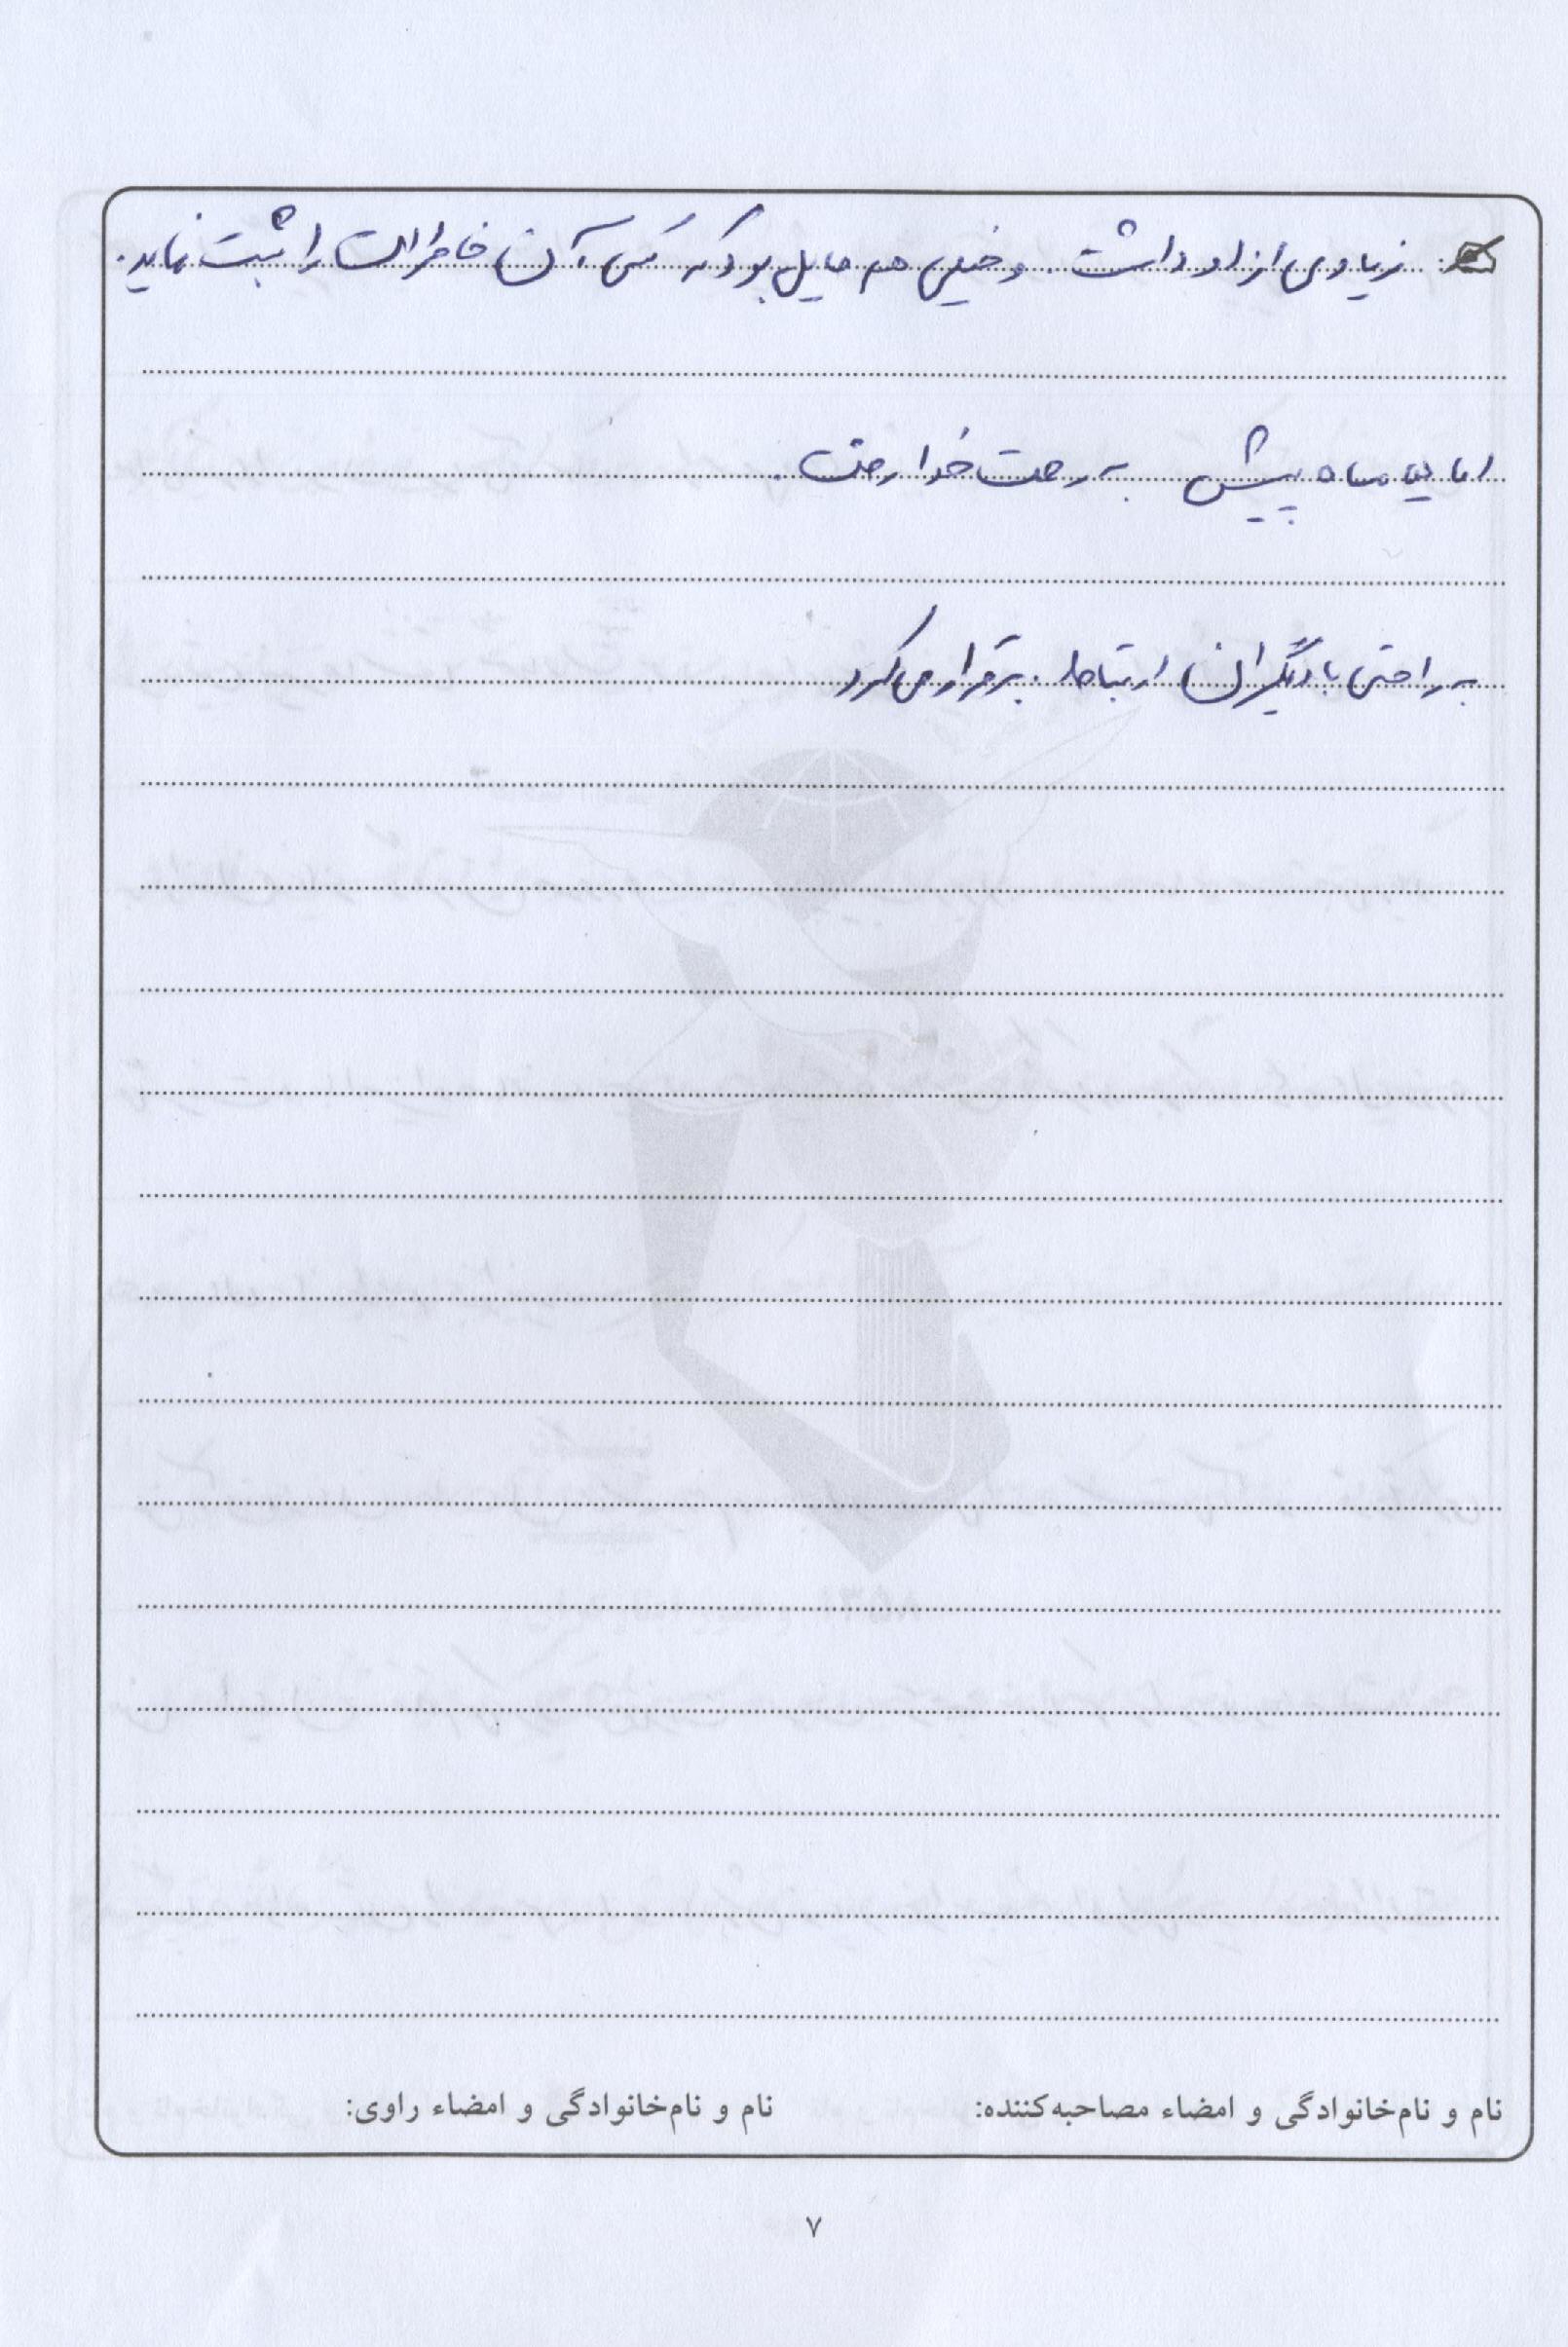 زیادی از او داشت. و خیلی هم مایل بود که کسی آن خاطرات را ثبت نماید.
اما ماه پیش به رحمت خدا رفت.
به راحتی با دیگران ارتباط برقرار می کرد
نام و نام‌خانوادگی و امضاء مصاحبه‌کننده:
نام و نام‌خانوادگی و امضاء راوی:
۷